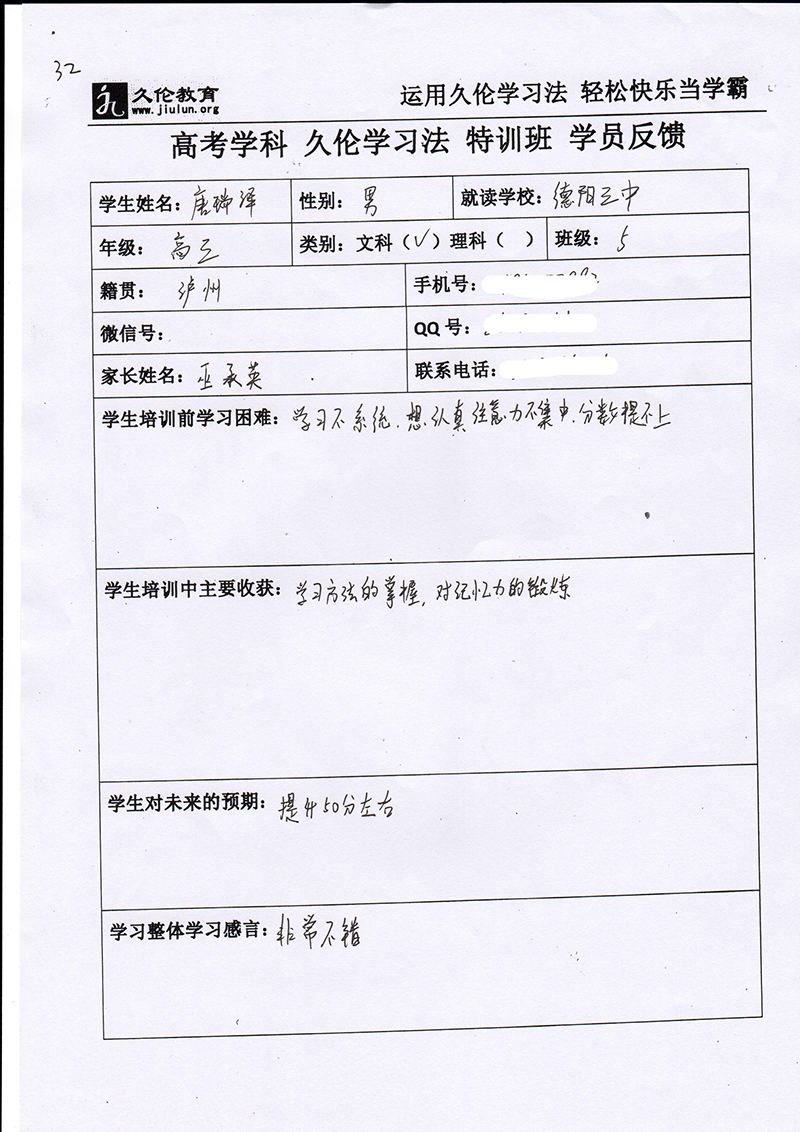 32
久伦教育 运用久伦学习法 轻松快乐当学霸
www.jiulun.org
高考学科 久伦学习法 特训班 学员反馈
学生姓名：唐瑞泽 性别：男 就读学校：德阳三中
年级：高三 类别：文科（√）理科（ ） 班级：5
籍贯：泸州 手机号：
微信号： QQ号：
家长姓名：巫承英 联系电话：
学生培训前学习困难：学习不系统．想认真注意力不集中．分数提不上
学生培训中主要收获：学习方法的掌握，对记忆力的锻炼
学生对未来的预期：提升50分左右
学习整体学习感言：非常不错